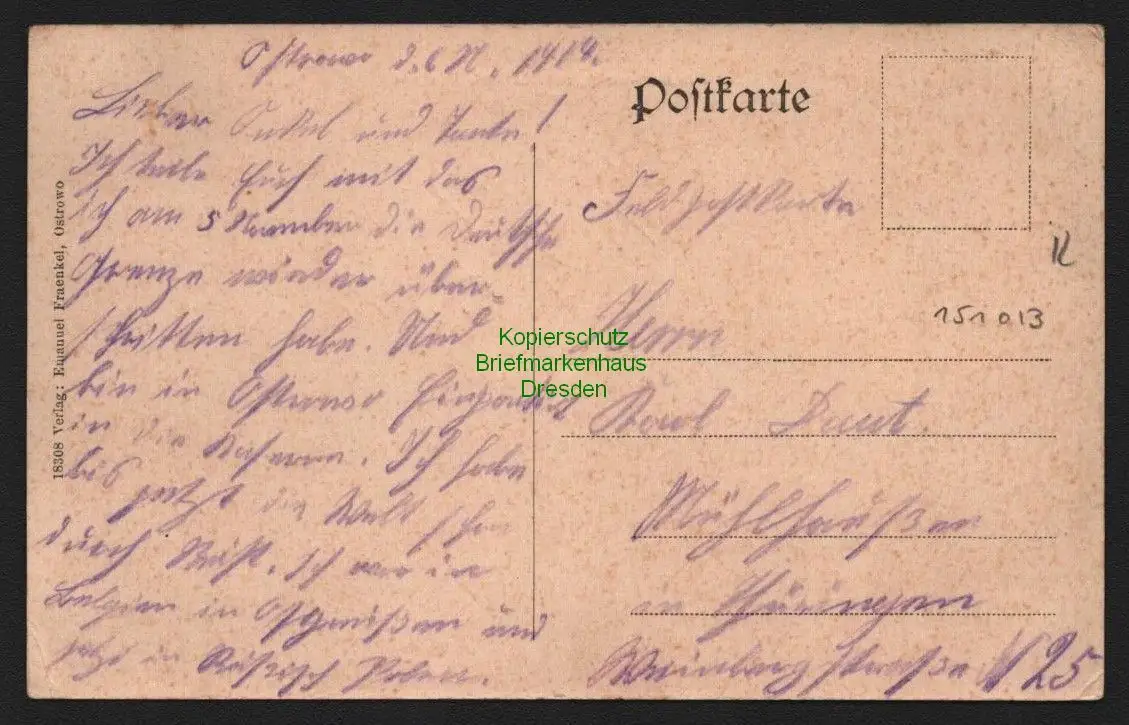 Ostrowo d. 6 N. 1914.
Lieber Onkel und Tante!
Ich teile Euch mit das
ich am 5 November die Deutsche
Grenze wieder über-
schritten habe. Und
bin in Ostrowo
in die Kaserne. Ich habe
bis jetzt die Welt schon
durch Reist. Ich war in
Belgien in Ostpreußen und
jetzt in Rußisch Polen.
18308 Verlag: Emanuel Fraenkel, Ostrowo
Postkarte
Feldpostkarte
Herrn
Karl Daut.
Mühlhaußen
in Thüringen
Weinberg straße N 25
151013
Kopierschutz
Briefmarkenhaus
Dresden